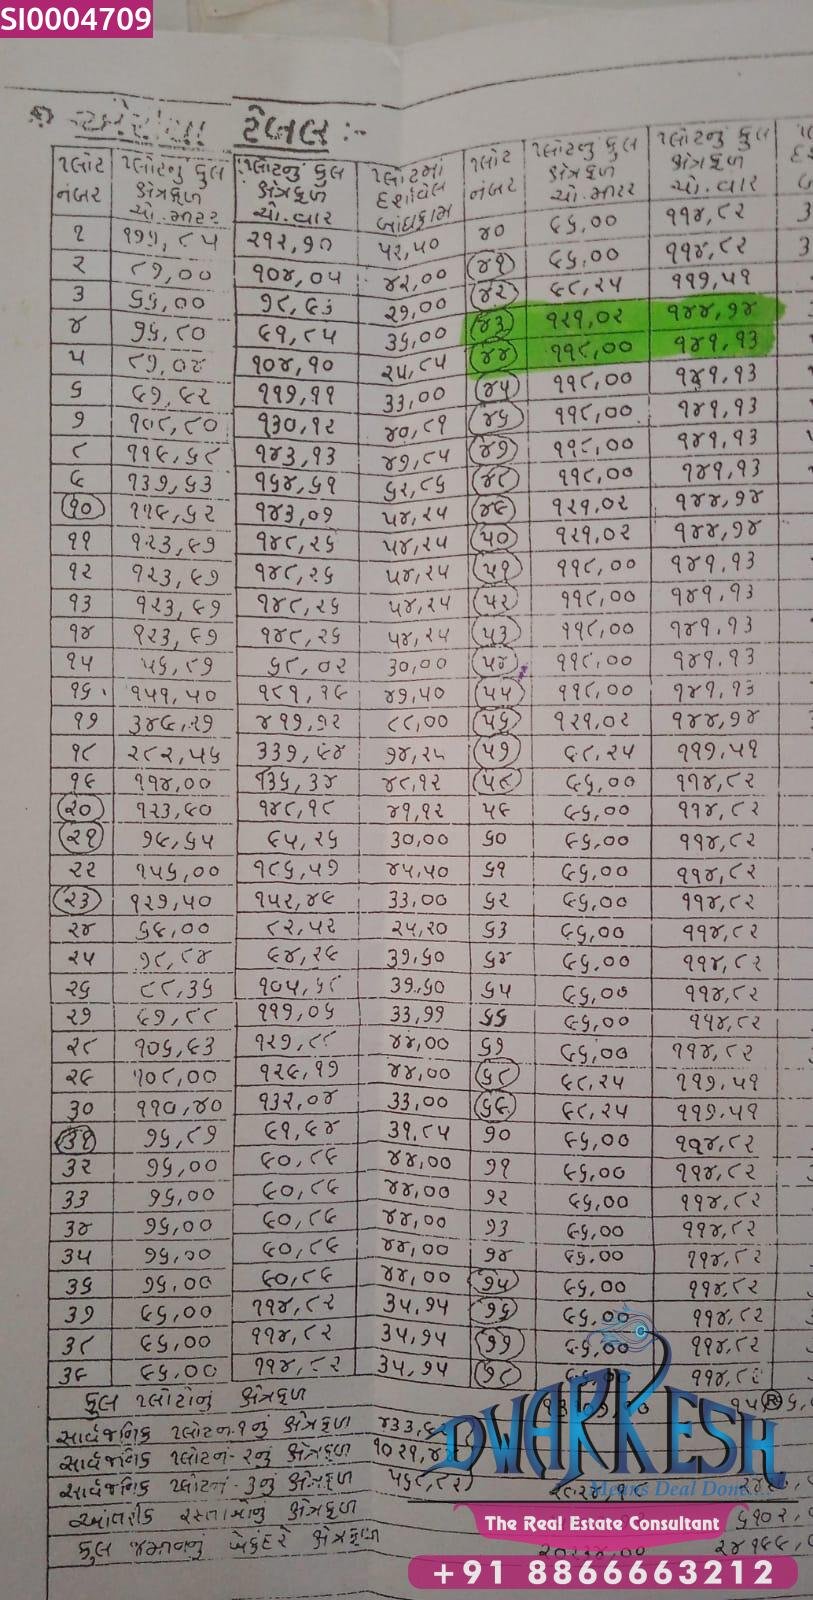 SI0004709
ટેબલ :-
પ્લોટ નંબર | પ્લોટનું કુલ ક્ષેત્રફળ ચો.મીટર | પ્લોટનું કુલ ક્ષેત્રફળ ચો.વાર | પ્લોટમાં દર્શાવેલ બાંધકામ | પ્લોટ નંબર | પ્લોટનું કુલ ક્ષેત્રફળ ચો.મીટર | પ્લોટનું કુલ ક્ષેત્રફળ ચો.વાર
૧ ૧૭૭,૮૫ ૨૧૨,૭૦ ૫૨,૫૦ ૪૦ ૯૬,૦૦ ૧૧૪,૮૨
૨ ૮૭,૦૦ ૧૦૪,૦૫ ૪૨,૦૦ ૪૧ ૯૬,૦૦ ૧૧૪,૮૨
૩ ૬૬,૦૦ ૭૮,૯૩ ૨૭,૦૦ ૪૨ ૯૮,૨૫ ૧૧૭,૫૧
૪ ૭૬,૮૦ ૯૧,૮૫ ૩૬,૦૦ ૪૩ ૧૨૧,૦૨ ૧૪૪,૭૪
૫ ૮૭,૦૪ ૧૦૪,૧૦ ૨૫,૮૫ ૪૪ ૧૧૮,૦૦ ૧૪૧,૧૩
૬ ૯૭,૯૨ ૧૧૭,૧૧ ૩૩,૦૦ ૪૫ ૧૧૮,૦૦ ૧૪૧,૧૩
૭ ૧૦૮,૮૦ ૧૩૦,૧૨ ૪૦,૮૧ ૪૬ ૧૧૮,૦૦ ૧૪૧,૧૩
૮ ૧૧૯,૬૮ ૧૪૩,૧૩ ૪૭,૮૫ ૪૭ ૧૧૮,૦૦ ૧૪૧,૧૩
૯ ૧૩૭,૬૩ ૧૬૪,૬૧ ૬૨,૮૬ ૪૮ ૧૧૮,૦૦ ૧૪૧,૧૩
૧૦ ૧૧૯,૬૨ ૧૪૩,૦૭ ૫૪,૨૫ ૪૯ ૧૨૧,૦૨ ૧૪૪,૭૪
૧૧ ૧૨૩,૯૭ ૧૪૮,૨૬ ૫૪,૨૫ ૫૦ ૧૨૧,૦૨ ૧૪૪,૭૪
૧૨ ૧૨૩,૯૭ ૧૪૮,૨૬ ૫૪,૨૫ ૫૧ ૧૧૮,૦૦ ૧૪૧,૧૩
૧૩ ૧૨૩,૯૭ ૧૪૮,૨૬ ૫૪,૨૫ ૫૨ ૧૧૮,૦૦ ૧૪૧,૧૩
૧૪ ૧૨૩,૯૭ ૧૪૮,૨૬ ૫૪,૨૫ ૫૩ ૧૧૮,૦૦ ૧૪૧,૧૩
૧૫ ૫૬,૮૭ ૬૮,૦૨ ૩૦,૦૦ ૫૪ ૧૧૮,૦૦ ૧૪૧,૧૩
૧૬ ૧૫૧,૫૦ ૧૮૧,૧૯ ૪૭,૫૦ ૫૫ ૧૧૮,૦૦ ૧૪૧,૧૩
૧૭ ૩૪૯,૨૭ ૪૧૭,૭૨ ૮૮,૦૦ ૫૬ ૧૨૧,૦૨ ૧૪૪,૭૪
૧૮ ૨૮૨,૫૬ ૩૩૭,૯૪ ૭૪,૨૫ ૫૭ ૯૮,૨૫ ૧૧૭,૫૧
૧૯ ૧૧૪,૦૦ ૧૩૬,૩૪ ૪૮,૧૨ ૫૮ ૯૬,૦૦ ૧૧૪,૮૨
૨૦ ૧૨૩,૯૦ ૧૪૮,૧૮ ૪૧,૧૨ ૫૯ ૯૬,૦૦ ૧૧૪,૮૨
૨૧ ૭૯,૬૫ ૯૫,૨૬ ૩૦,૦૦ ૬૦ ૯૬,૦૦ ૧૧૪,૮૨
૨૨ ૧૫૬,૦૦ ૧૮૬,૫૭ ૪૫,૫૦ ૬૧ ૯૬,૦૦ ૧૧૪,૮૨
૨૩ ૧૨૭,૫૦ ૧૫૨,૪૯ ૩૩,૦૦ ૬૨ ૯૬,૦૦ ૧૧૪,૮૨
૨૪ ૬૯,૦૦ ૮૨,૫૨ ૨૫,૨૦ ૬૩ ૯૬,૦૦ ૧૧૪,૮૨
૨૫ ૭૮,૮૪ ૯૪,૨૯ ૩૧,૬૦ ૬૪ ૯૬,૦૦ ૧૧૪,૮૨
૨૬ ૮૮,૩૬ ૧૦૫,૬૮ ૩૧,૬૦ ૬૫ ૯૬,૦૦ ૧૧૪,૮૨
૨૭ ૯૭,૮૮ ૧૧૭,૦૬ ૩૩,૧૧ ૬૬ ૯૬,૦૦ ૧૧૪,૮૨
૨૮ ૧૦૬,૯૩ ૧૨૭,૮૮ ૪૪,૦૦ ૬૭ ૯૬,૦૦ ૧૧૪,૮૨
૨૯ ૧૦૮,૦૦ ૧૨૯,૧૭ ૪૪,૦૦ ૬૮ ૯૮,૨૫ ૧૧૭,૫૧
૩૦ ૧૧૦,૪૦ ૧૩૨,૦૪ ૩૩,૦૦ ૬૯ ૯૮,૨૫ ૧૧૭,૫૧
૩૧ ૭૬,૮૭ ૯૧,૯૪ ૩૧,૮૫ ૭૦ ૯૬,૦૦ ૧૧૪,૮૨
૩૨ ૭૬,૦૦ ૯૦,૮૯ ૪૪,૦૦ ૭૧ ૯૬,૦૦ ૧૧૪,૮૨
૩૩ ૭૬,૦૦ ૯૦,૮૯ ૪૪,૦૦ ૭૨ ૯૬,૦૦ ૧૧૪,૮૨
૩૪ ૭૬,૦૦ ૯૦,૮૯ ૪૪,૦૦ ૭૩ ૯૬,૦૦ ૧૧૪,૮૨
૩૫ ૭૬,૦૦ ૯૦,૮૯ ૪૪,૦૦ ૭૪ ૯૬,૦૦ ૧૧૪,૮૨
૩૬ ૭૬,૦૦ ૯૦,૮૯ ૪૪,૦૦ ૭૫ ૯૬,૦૦ ૧૧૪,૮૨
૩૭ ૯૬,૦૦ ૧૧૪,૮૨ ૩૫,૭૫ ૭૬ ૯૬,૦૦ ૧૧૪,૮૨
૩૮ ૯૬,૦૦ ૧૧૪,૮૨ ૩૫,૭૫ ૭૭ ૯૬,૦૦ ૧૧૪,૮૨
૩૯ ૯૬,૦૦ ૧૧૪,૮૨ ૩૫,૭૫ ૭૮ ૯૬,૦૦ ૧૧૪,૮૨
કુલ પ્લોટોનું ક્ષેત્રફળ
સાર્વજનિક પ્લોટ નં.૧નું ક્ષેત્રફળ
સાર્વજનિક પ્લોટ નં-૨નું ક્ષેત્રફળ
સાર્વજનિક પ્લોટ નં-૩નું ક્ષેત્રફળ
આંતરીક રસ્તાઓનું ક્ષેત્રફળ
કુલ જમીનનું એકંદરે ક્ષેત્રફળ
DWARKESH
Means Deal Done....
The Real Estate Consultant
+91 8866663212